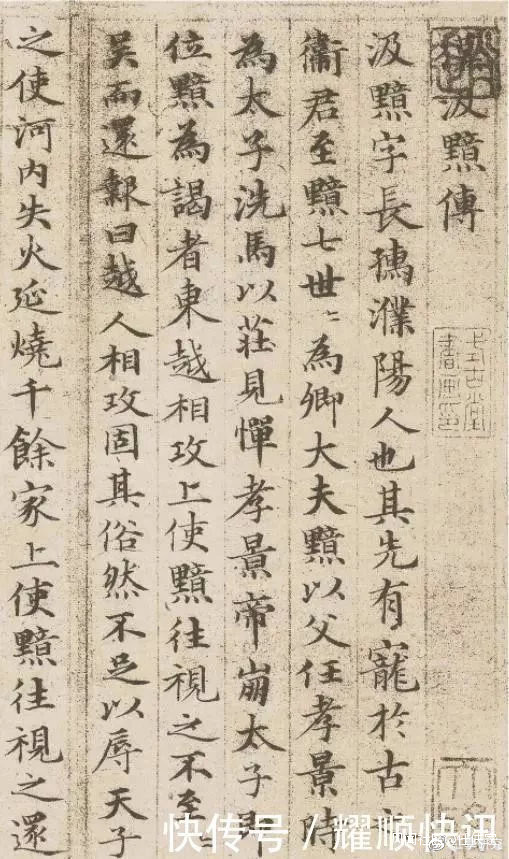 汲黯傳
汲黯字長孺濮陽人也其先有寵於古之
衞君至黯七世〻為卿大夫黯以父任孝景時
為太子洗馬以莊見憚孝景帝崩太子即
位黯為謁者東越相攻上使黯往視之不至〻
吳而還報曰越人相攻固其俗然不足以辱天子
之使河內失火延燒千餘家上使黯往視之還
快传号/耀顺快讯